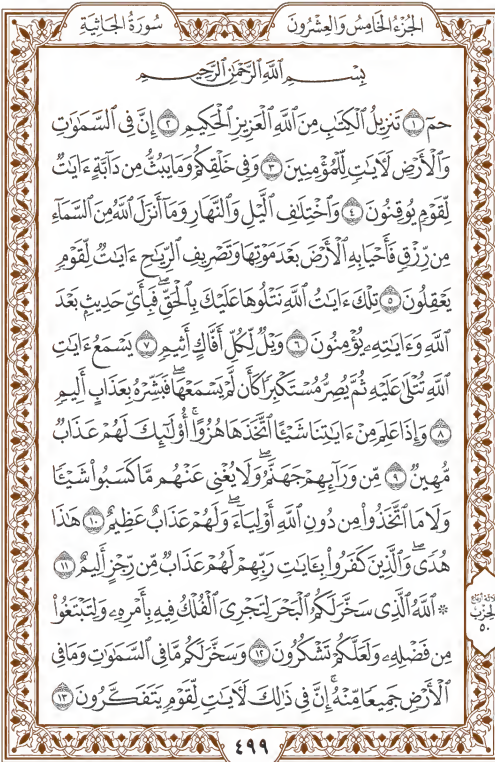 الجُزْءُ الخَامِسُ وَالعِشْرُونَ سُورَةُ الجَاثِيَةِ
بِسْمِ ٱللَّهِ ٱلرَّحْمَٰنِ ٱلرَّحِيمِ
حمٓ ١ تَنزِيلُ ٱلْكِتَٰبِ مِنَ ٱللَّهِ ٱلْعَزِيزِ ٱلْحَكِيمِ ٢ إِنَّ فِى ٱلسَّمَٰوَٰتِ
وَٱلْأَرْضِ لَءَايَٰتٍ لِّلْمُؤْمِنِينَ ٣ وَفِى خَلْقِكُمْ وَمَا يَبُثُّ مِن دَآبَّةٍ ءَايَٰتٌ
لِّقَوْمٍ يُوقِنُونَ ٤ وَٱخْتِلَٰفِ ٱلَّيْلِ وَٱلنَّهَارِ وَمَآ أَنزَلَ ٱللَّهُ مِنَ ٱلسَّمَآءِ
مِن رِّزْقٍ فَأَحْيَا بِهِ ٱلْأَرْضَ بَعْدَ مَوْتِهَا وَتَصْرِيفِ ٱلرِّيَٰحِ ءَايَٰتٌ لِّقَوْمٍ
يَعْقِلُونَ ٥ تِلْكَ ءَايَٰتُ ٱللَّهِ نَتْلُوهَا عَلَيْكَ بِٱلْحَقِّ ۖ فَبِأَىِّ حَدِيثٍۭ بَعْدَ
ٱللَّهِ وَءَايَٰتِهِۦ يُؤْمِنُونَ ٦ وَيْلٌ لِّكُلِّ أَفَّاكٍ أَثِيمٍ ٧ يَسْمَعُ ءَايَٰتِ
ٱللَّهِ تُتْلَىٰ عَلَيْهِ ثُمَّ يُصِرُّ مُسْتَكْبِرًا كَأَن لَّمْ يَسْمَعْهَا ۖ فَبَشِّرْهُ بِعَذَابٍ أَلِيمٍ
٨ وَإِذَا عَلِمَ مِنْ ءَايَٰتِنَا شَيْـًٔا ٱتَّخَذَهَا هُزُوًا ۚ أُو۟لَٰٓئِكَ لَهُمْ عَذَابٌ
مُّهِينٌ ٩ مِّن وَرَآئِهِمْ جَهَنَّمُ ۖ وَلَا يُغْنِى عَنْهُم مَّا كَسَبُوا۟ شَيْـًٔا
وَلَا مَا ٱتَّخَذُوا۟ مِن دُونِ ٱللَّهِ أَوْلِيَآءَ ۖ وَلَهُمْ عَذَابٌ عَظِيمٌ ١٠ هَٰذَا
هُدًى ۖ وَٱلَّذِينَ كَفَرُوا۟ بِـَٔايَٰتِ رَبِّهِمْ لَهُمْ عَذَابٌ مِّن رِّجْزٍ أَلِيمٌ ١١
۞ ٱللَّهُ ٱلَّذِى سَخَّرَ لَكُمُ ٱلْبَحْرَ لِتَجْرِىَ ٱلْفُلْكُ فِيهِ بِأَمْرِهِۦ وَلِتَبْتَغُوا۟
مِن فَضْلِهِۦ وَلَعَلَّكُمْ تَشْكُرُونَ ١٢ وَسَخَّرَ لَكُم مَّا فِى ٱلسَّمَٰوَٰتِ وَمَا فِى
ٱلْأَرْضِ جَمِيعًا مِّنْهُ ۚ إِنَّ فِى ذَٰلِكَ لَءَايَٰتٍ لِّقَوْمٍ يَتَفَكَّرُونَ ١٣
ثلاثة أرباع
الحزب
٥٠
٤٩٩